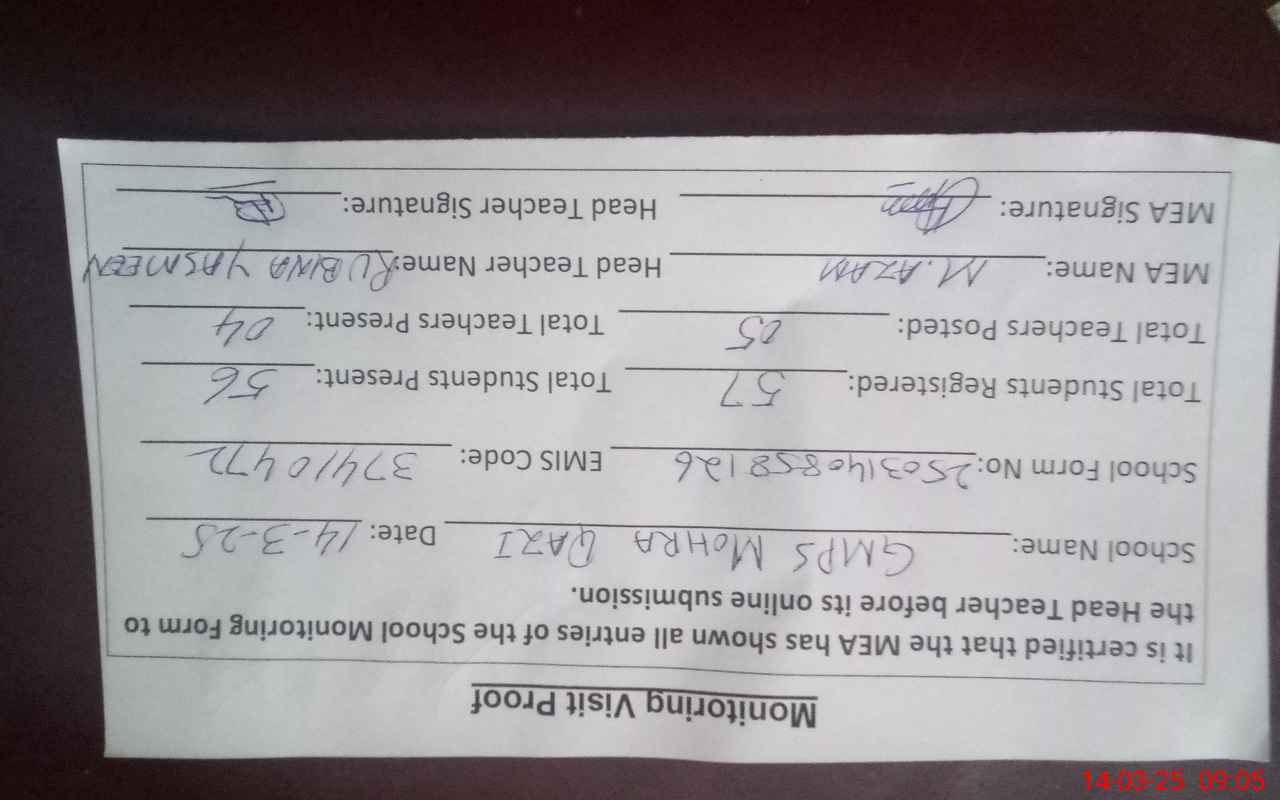 Monitoring Visit Proof
It is certified that the MEA has shown all entries of the School Monitoring Form to
the Head Teacher before its online submission.
School Name: GMPS MOHRA QAZI Date: 14-3-25
School Form No: 250314085858126 EMIS Code: 37410472
Total Students Registered: 57 Total Students Present: 56
Total Teachers Posted: 05 Total Teachers Present: 04
MEA Name: M. AZAM Head Teacher Name: RUBINA YASMEEN
MEA Signature: Head Teacher Signature:
14-03-25 09:05